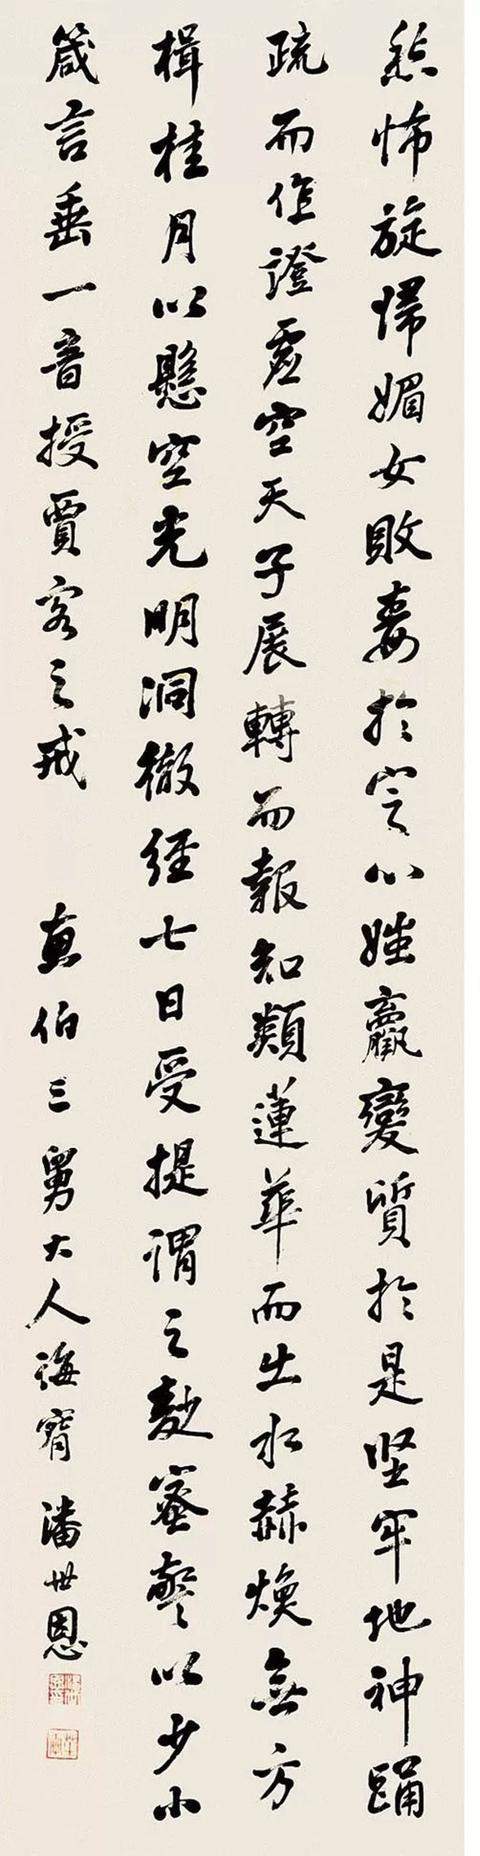 愁怖旋歸媚女敗毒於定心媸羸變質於是堅牢地神踊
疏而作證虛空天子展轉而報知類蓮華而出水赫煥無方
楫桂月以懸空光明洞徹經七日受提謂之麨蜜警以少小
箴言垂一音授賈客之戒
伯三舅大人誨甯 潘世恩